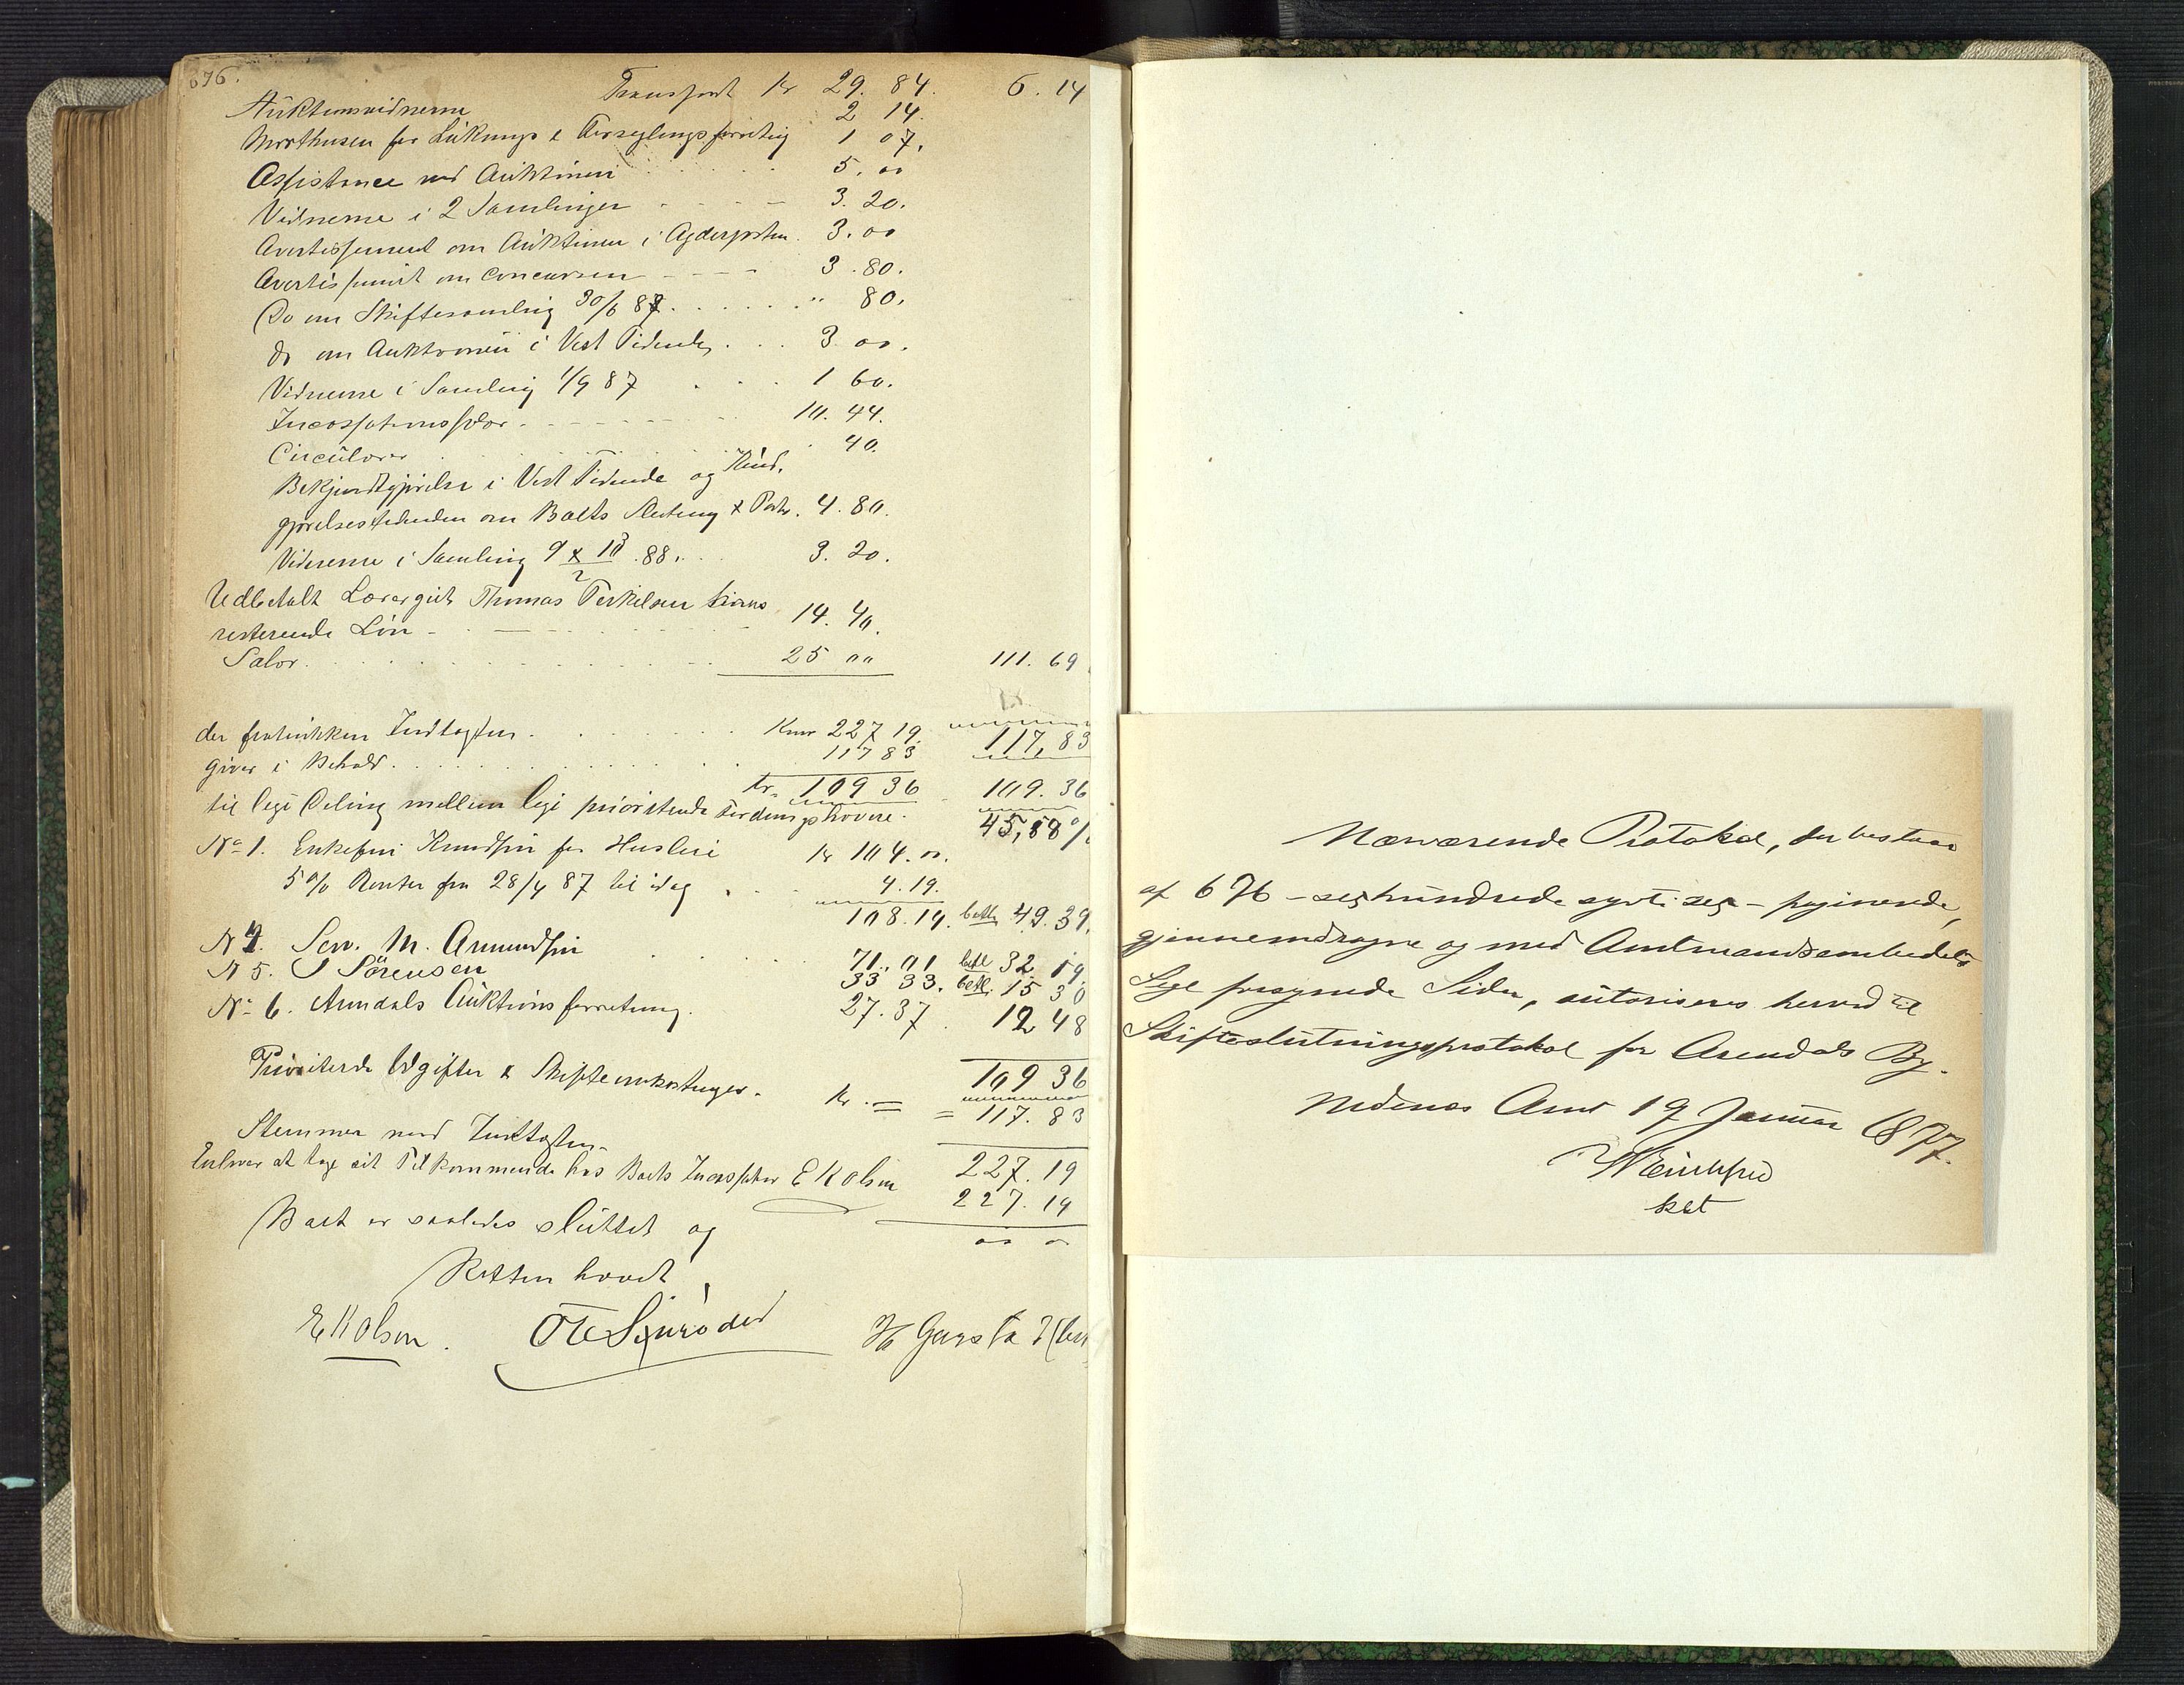 676.
Transport Kr 29. 84. 6. 14
Auktionsvidnerne 2 14.
Morthusen for Luknings & Forseglingsforretng 1 07.
Assistance ved Auktionen 5. 00
Vidnerne i 2 Samlinger 3. 20.
Avertissement om Auktionen i Agderposten 3. 00
Avertissemnt om Concursen 3. 80.
Do om Skiftesamling 30/6 87 " 80.
do om Auktionen i Vest Tidende 3 00.
Vidnerne i Samling 1/9 87 1 60.
Incassations 10. 44.
Circulærer 40.
Bekjendtgjørelse i Vest Tidende og Kund.
gjørelsestidenden om Boets Slutning & Porto. 4. 80.
Vidnerne i Samling 9 & 10/2 88. 3. 20.
Udbetalt Thomas Terkelsen hans
resterende Løn 14. 40.
Salær 25 00 111. 69
der fratrukken Indtægten Kroner 227 19. 117,83
giver i Behold 117 83
kr. 109 36 109. 36
til lige Deling mellem lige prioriterede Fordringshavere. 45,68 %
No 1. Enkefru Knudsen for Husleie Kr 104. 00.
5 % Renter fra 28/4 87 til idag 4. 19.
108. 19. betl. 49. 39.
N 4. Sew. M. Amundsen 71. 01 betl 32. 19.
N 5. S Sörensen 33 33. betl. 15 30
No 6. Arendals Auktionsforretning. 27. 37. 12 48
109 36
Prioriterede Udgifter & Skifteomkostninger. Kr. = = 117. 83
Stemmer med Indtægten 227. 19
Enhver at tage sit Tilkommende hos Boets Incassator E K Olsen 227. 19
Boet er saaledes sluttet og 00 00
Retten hævet
E K Olsen. H Garsta
Nærværende Protokol, der bestaar
af 676 – sexhundrede sytti sex – paginerede,
gjennemdragne og med Amtmandsembedets
Segl forsynede Sider, autoriseres herved til
Skifteslutningsprotokol for Arendals By.
Nedenes Amt 19 Januar 1877.
kst